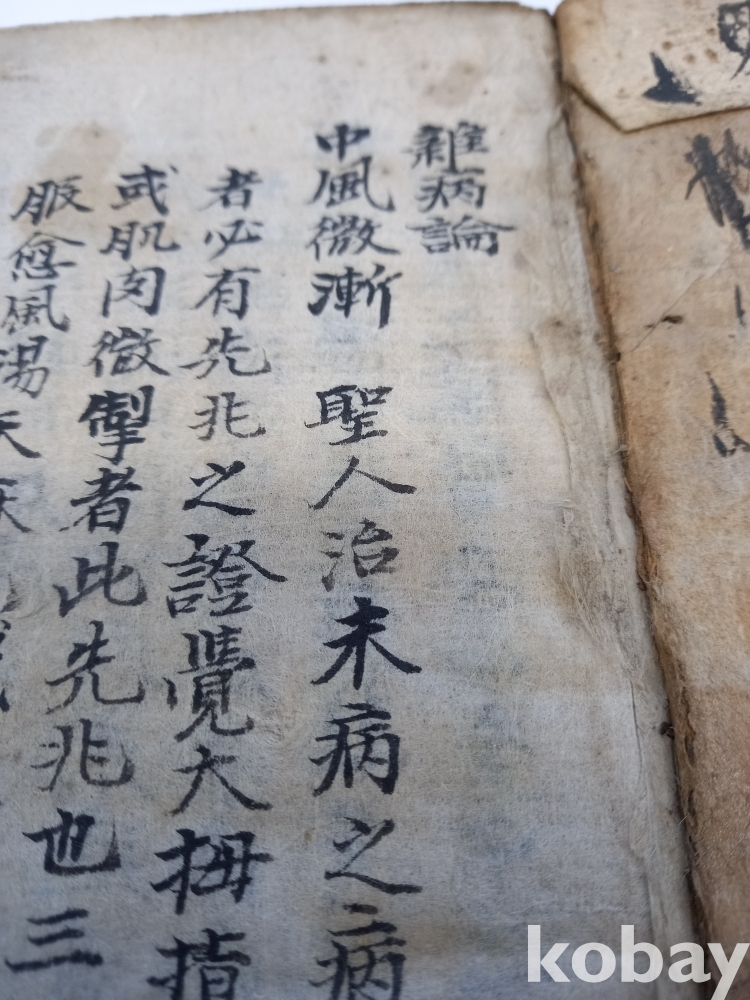 雜病論
中風微漸 聖人治未病之病
者必有先兆之證覺大拇指
或肌肉微掣者此先兆也三
服愈風湯天
kobay